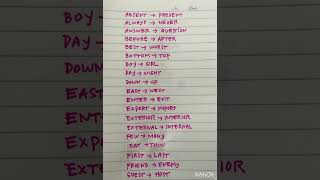 ABSENT → PRESENT
ALWAYS → NEVER
ANSWER → QUESTION
BEFORE → AFTER
BEST → WORST
BOTTOM → TOP
BOY → GIRL
DAY → NIGHT
DOWN → UP
EAST → WEST
ENTER → EXIT
EXPORT → IMPORT
EXTERIOR → INTERIOR
EXTERNAL → INTERNAL
FEW → MANY
FAT → THIN
FIRST → LAST
FRIEND → ENEMY
GUEST → HOST